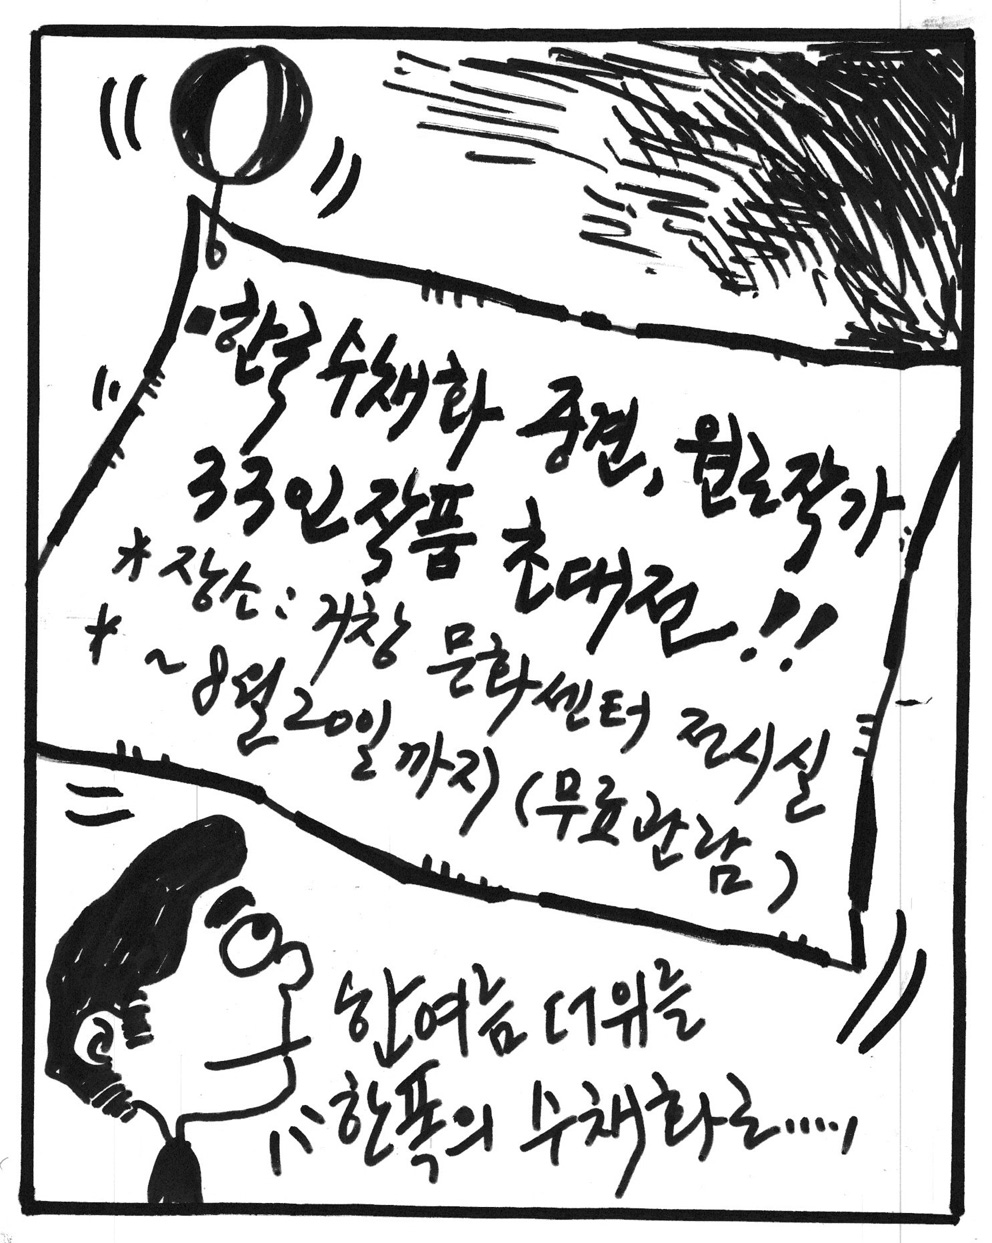 ▪한국수채화 중견, 원로작가
33인 작품 초대전!!
* 장소: 거창 문화센터 전시실
* ~8월20일까지 (무료관람)
한여름 더위를
한폭의 수채화로.....,